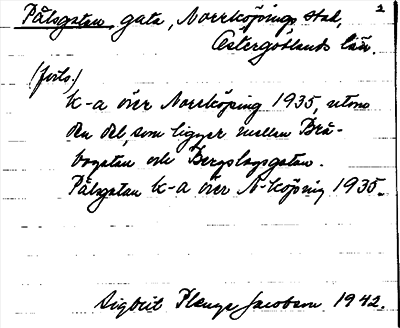 2
Pålsgatan, gata, Norrköpings stad,
Östergötlands län.
(forts.)
K-a över Norrköping 1935, utom
den del, som ligger mellan Brå-
bogatan och Bergslagsgatan.
Pålsgatan K-a över N-köping 1935.
Sigbrit Plænge Jacobson 1942.